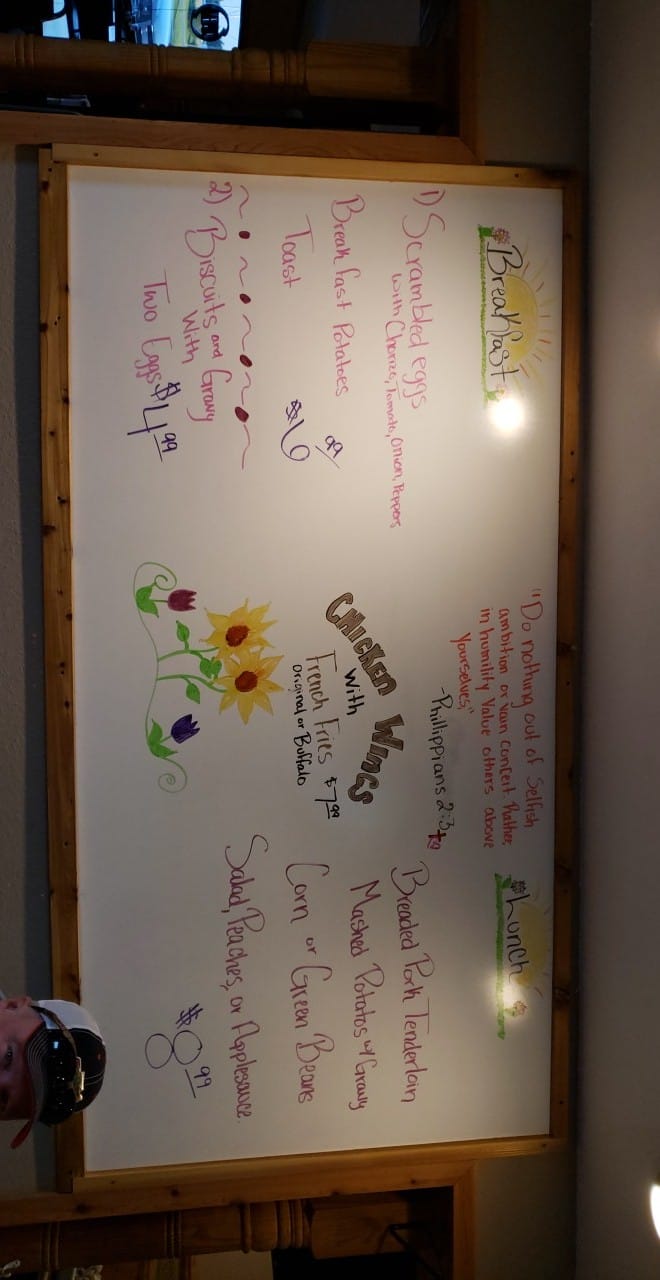 Breakfast
1) Scrambled eggs
with Chorizo, Tomato, Onion, Peppers
Breakfast Potatoes
Toast
$6 29
2) Biscuits and Gravy
With
Two Eggs $4 99
"Do nothing out of Selfish
ambition or vain conceit. Rather,
in humility Value others above
Yourselves,"
-Phillippians 2:3
CHICKEN WINGS
With
French Fries $7 99
Original or Buffalo
Lunch
Breaded Pork Tenderloin
Mashed Potatos w/ Gravy
Corn or Green Beans
Salad, Peaches, or Applesauce.
$8 99